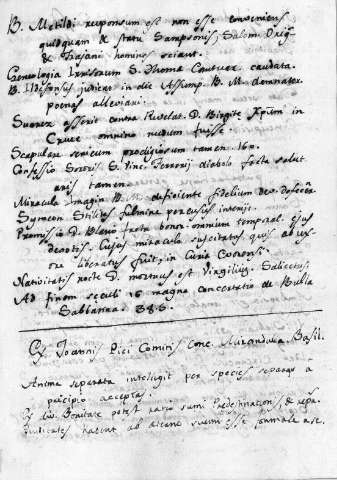 B. Metildi responsum est non esse conveniens
quidquam de statu Sampsonis, Salom. Orig.
& Trajani homines sciant.
Genealogia S. Thoma Cantuar. caudata.
B. Ildefonsus judicat in die Assump. B. M. damnator.
poenas alleviari.
Suarez asserit contra Revelat. D. Birgitæ Xptum in
Cruce omnino nudum fuisse.
Scapulare prodigiosum tamen 160.
Confessio Sororis S. Vinc. Ferrerij diabolo facta salut
aris tamen.
Miracula Imagin. B. M. deficiente fidelium devo. defecta
Symeon Stilites fulmine percussus interijt.
D. Blasio facta honor. omnium temporal. ejus
devotis. Cujus miraculo suscitatus quis ab ux-
ore liberatus fuit, in Curia
Nativitatis nocte D. mortuus est Virgilius.
Ad finem seculi 16 magna concertatio de Bulla
Sabbatina. 386.
Ex Joannis Pici Comitis Conc. Mirandula. Basil.
Anima separata intelligit per species separat. a
principio acceptas.
Ex div. Bonitate potest ratio sumi Prædestinationis, & repr.
habent ab æterno suum esse formale